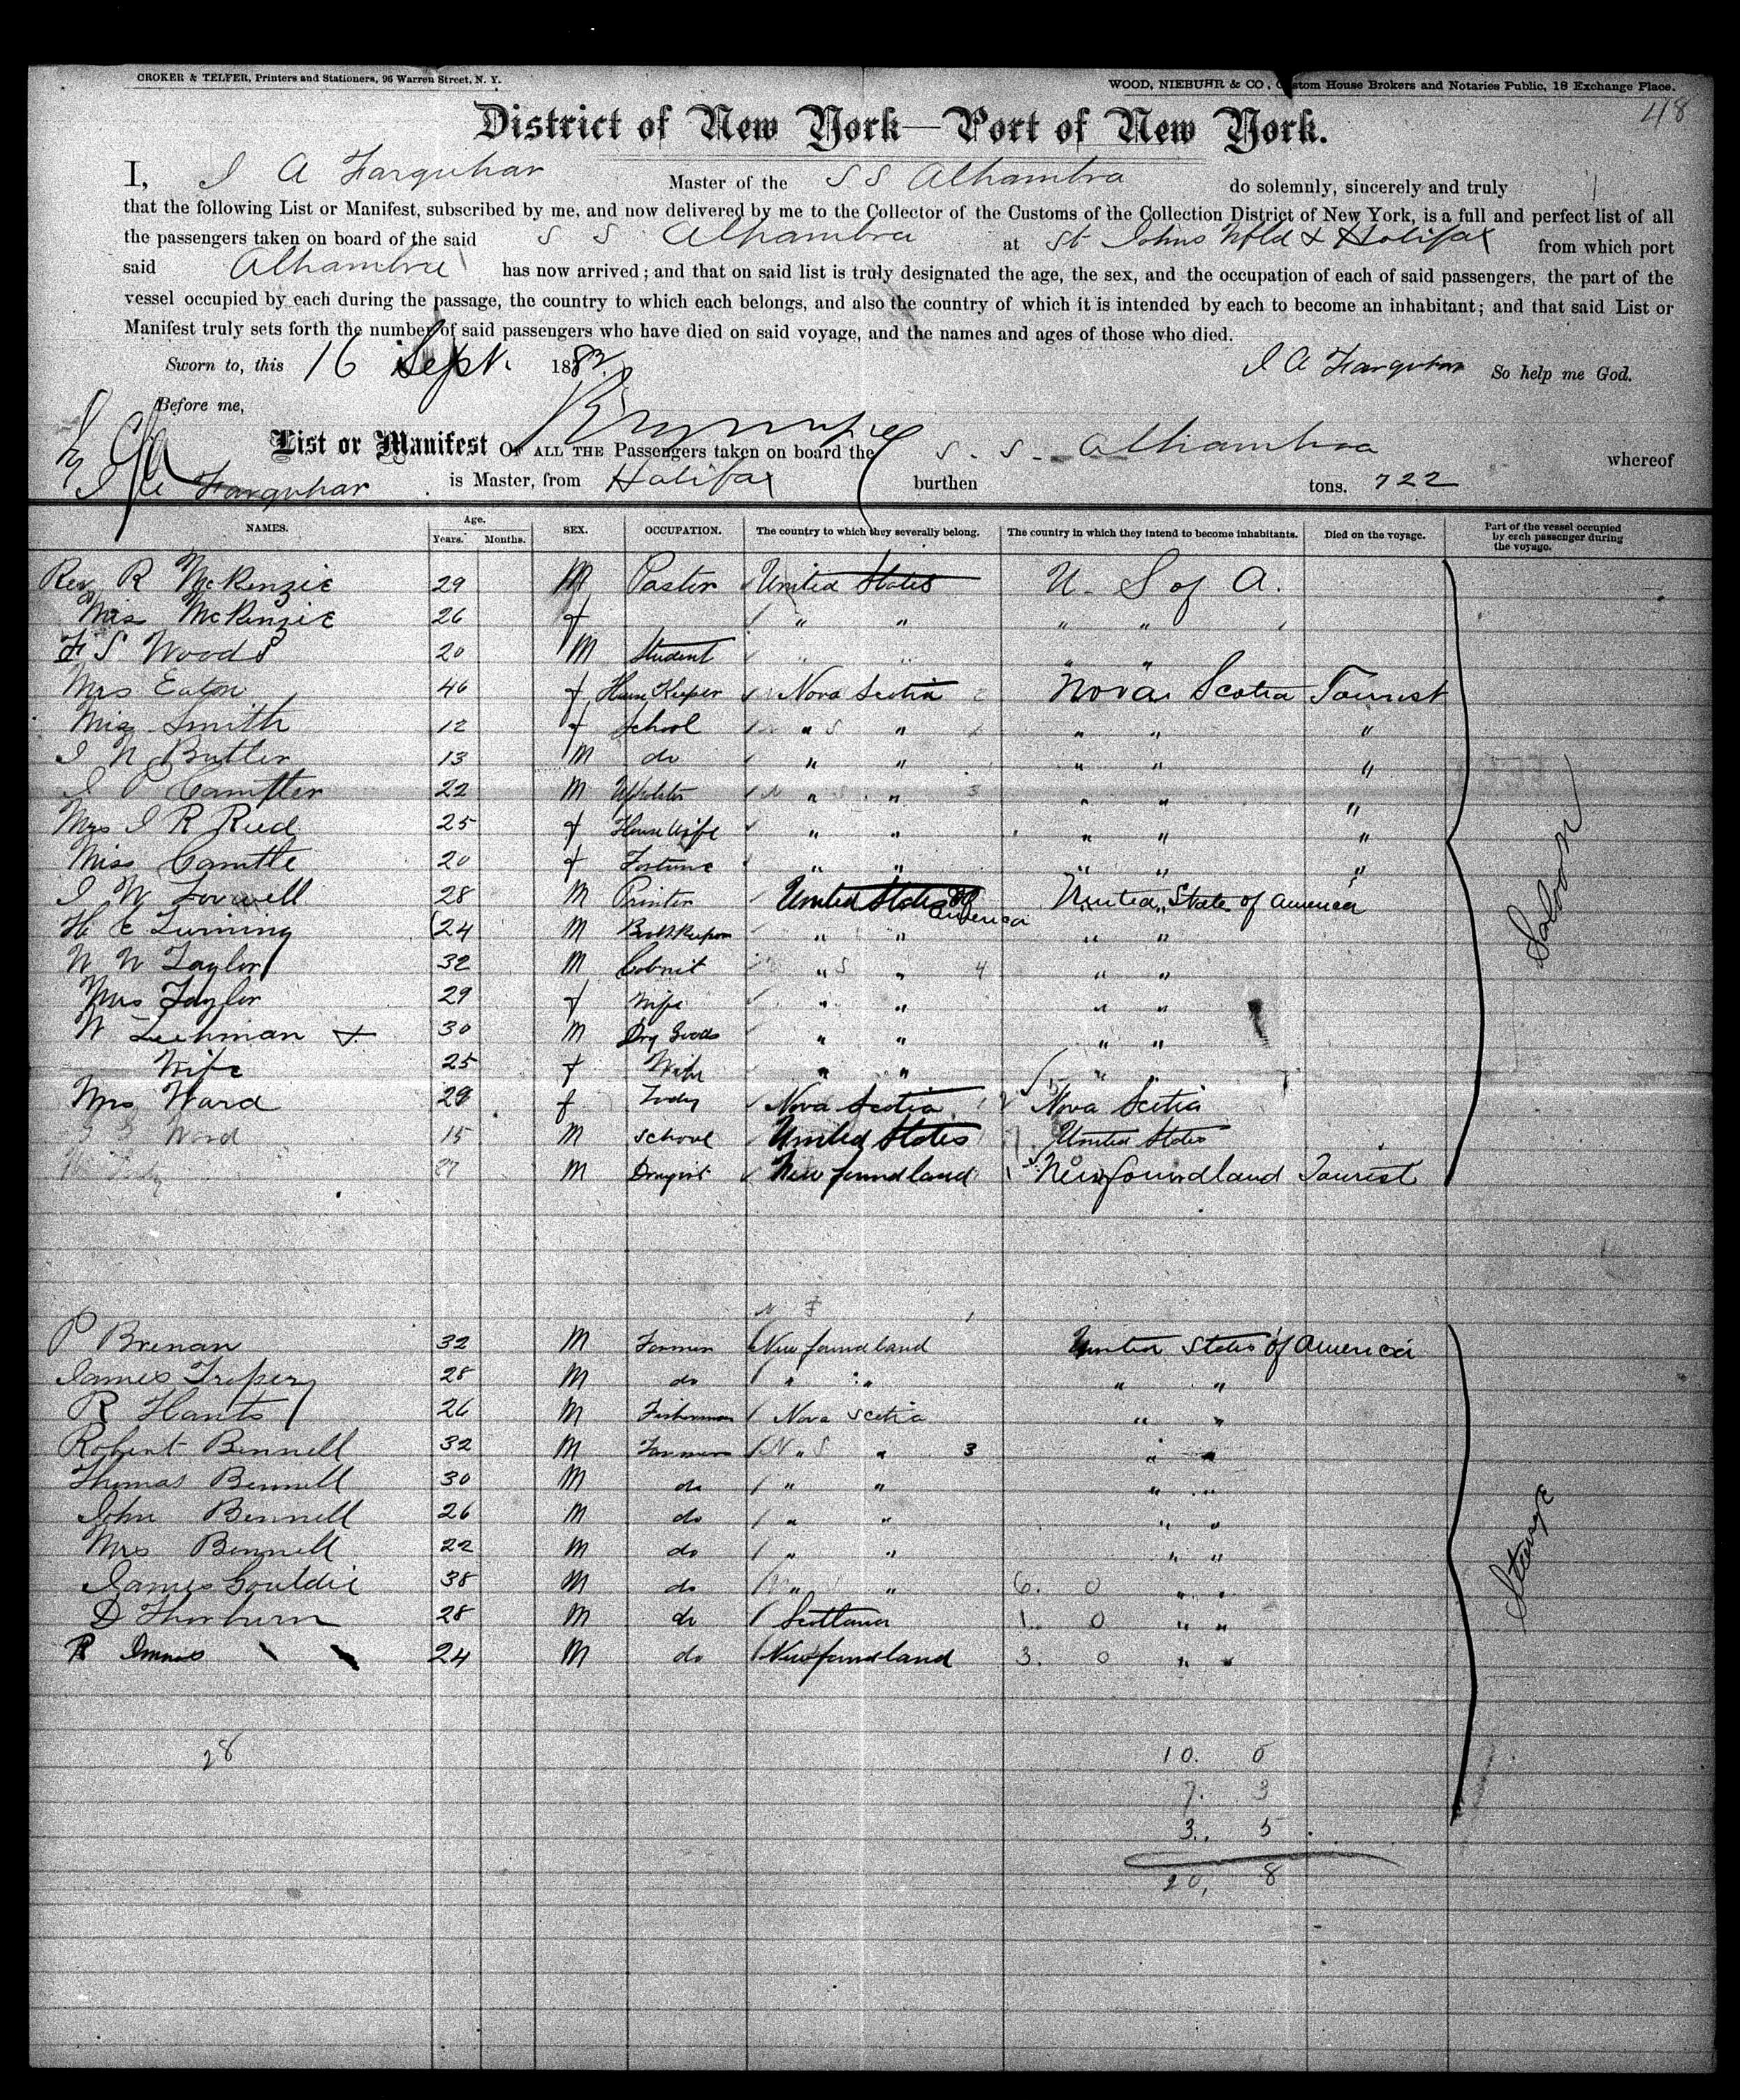 CROKER & TELFER, Printers and Stationers, 96 Warren Street, N. Y.
WOOD, NIEBUHR & CO., Custom House Brokers and Notaries Public, 18 Exchange Place.
48
District of New York—Port of New York.
I, J A Farquhar Master of the S S Alhambra do solemnly, sincerely and truly
that the following List or Manifest, subscribed by me, and now delivered by me to the Collector of the Customs of the Collection District of New York, is a full and perfect list of all
the passengers taken on board of the said S S Alhambra at St Johns Nfld & Halifax from which port
said Alhambra has now arrived; and that on said list is truly designated the age, the sex, and the occupation of each of said passengers, the part of the
vessel occupied by each during the passage, the country to which each belongs, and also the country of which it is intended by each to become an inhabitant; and that said List or
Manifest truly sets forth the number of said passengers who have died on said voyage, and the names and ages of those who died.
Sworn to, this 16 Sept. 188 J A Farquhar So help me God.
Before me,
List or Manifest OF ALL THE Passengers taken on board the S. S. Alhambra whereof
J A Farquhar is Master, from Halifax burthen tons. 722
NAMES. Age. Years. Months. SEX. OCCUPATION. The country to which they severally belong. The country in which they intend to become inhabitants. Died on the voyage. Part of the vessel occupied by each passenger during the voyage.
Rev R McKenzie 29 M Pastor United States U. S of A.
Mrs McKenzie 26 f " " " "
F S Woods 20 M Student " " " "
Mrs Eaton 46 f House Keeper Nova Scotia Nova Scotia Tourist
Miss Smith 12 f School " " " " "
J N Butler 13 M do " " " " "
J P 22 M " " " " "
Mrs J R Reed 25 f House Wife " " " " "
Miss 20 f Fortune " " " " "
J W 28 M Printer United States of America United State of America
H E 24 M " " " "
W W Taylor 32 M " " 4 " "
Mrs Taylor 29 f Wife " " " "
W Lechman + 30 M Dry Goods " " " "
Wife 25 f Wife " " " "
Mrs Ward 29 f Nova Scotia Nova Scotia
Ward 15 M School United States United States
M Newfoundland Newfoundland Tourist
Saloon
P Brenan 32 M Farmer Newfoundland United States of America
James 28 M do " " " "
R Hants 26 M Fisherman Nova Scotia " "
Robert Bennell 32 M Farmer N " S " 3 " "
Thomas Bennell 30 M do " " " "
John Bennell 26 M do " " " "
Mrs Bennell 22 M do " " " "
James Gouldie 38 M do " " 6. 0 " "
D Thorburn 28 M do Scotland 1. 0 " "
R Innes 24 M do Newfoundland 3. 0 " "
Steerage
28
10. 0
7. 3
3. 5
20, 8